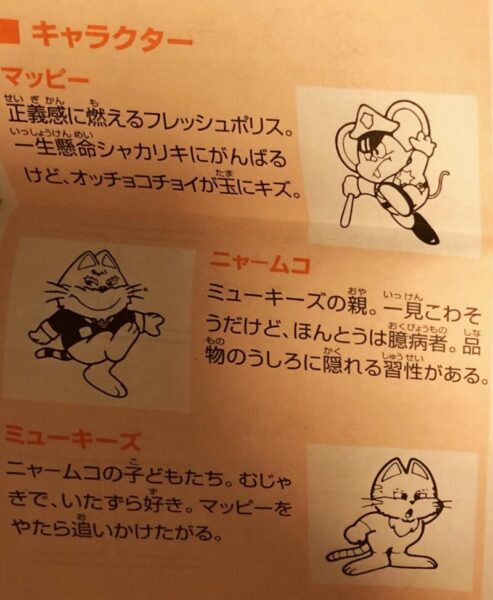 ■ キャラクター
マッピー
正義感に燃えるフレッシュポリス。
一生懸命シャカリキにがんばる
けど、オッチョコチョイが玉にキズ。
ニャームコ
ミューキーズの親。一見こわそ
うだけど、ほんとうは臆病者。品
物のうしろに隠れる習性がある。
ミューキーズ
ニャームコの子どもたち。むじゃ
きで、いたずら好き。マッピーを
やたら追いかけたがる。